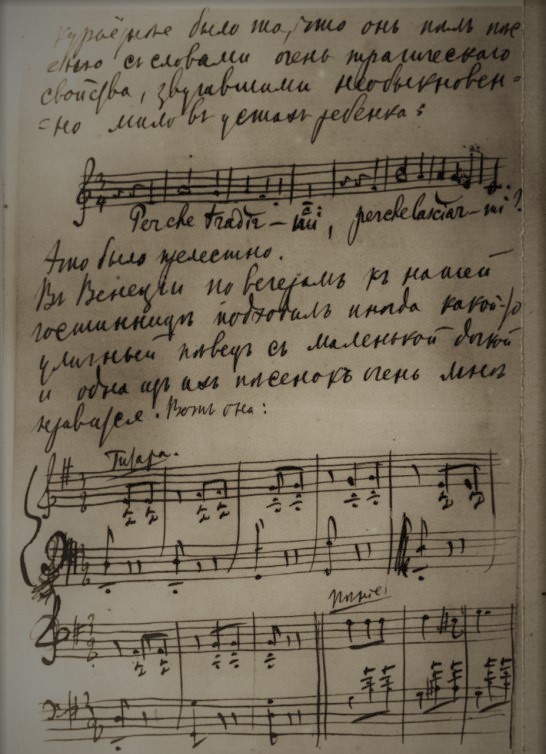 Курьёзнѣе было то, что онъ пѣлъ пѣс
съ словами очень трагическаго
свойства, звучавшими необыкновен=
=но мило въ устахъ ребенка:
Perche tradir-mi, perche lasciar-mi?
Это было прелестно.
Въ Венеціи по вечерамъ къ нашей
гостинницѣ подходилъ иногда какой-то
уличный пѣвецъ съ маленькой дочкой
и одна изъ ихъ пѣсенокъ очень мнѣ
нравится. Вотъ она:
Гитара.
Пѣніе: